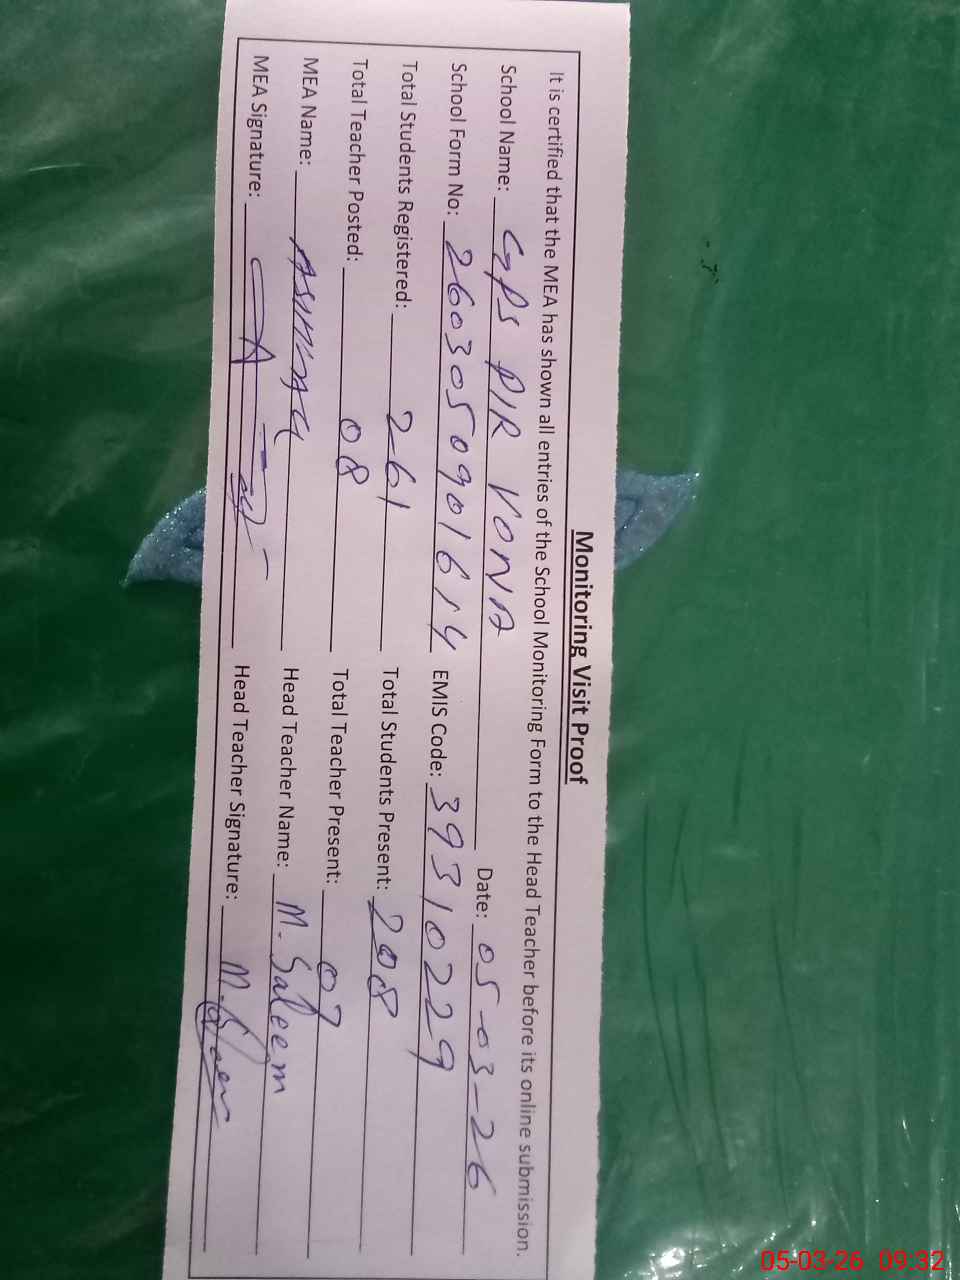 Monitoring Visit Proof
It is certified that the MEA has shown all entries of the School Monitoring Form to the Head Teacher before its online submission.
School Name: GPS PIR VONA Date: 05-03-26
School Form No: 260305090161 4 EMIS Code: 39310229
Total Students Registered: 261 Total Students Present: 208
Total Teacher Posted: 08 Total Teacher Present: 07
MEA Name: Head Teacher Name: M. Saleem
MEA Signature: Head Teacher Signature: M. Saleem
05-03-26 09:32